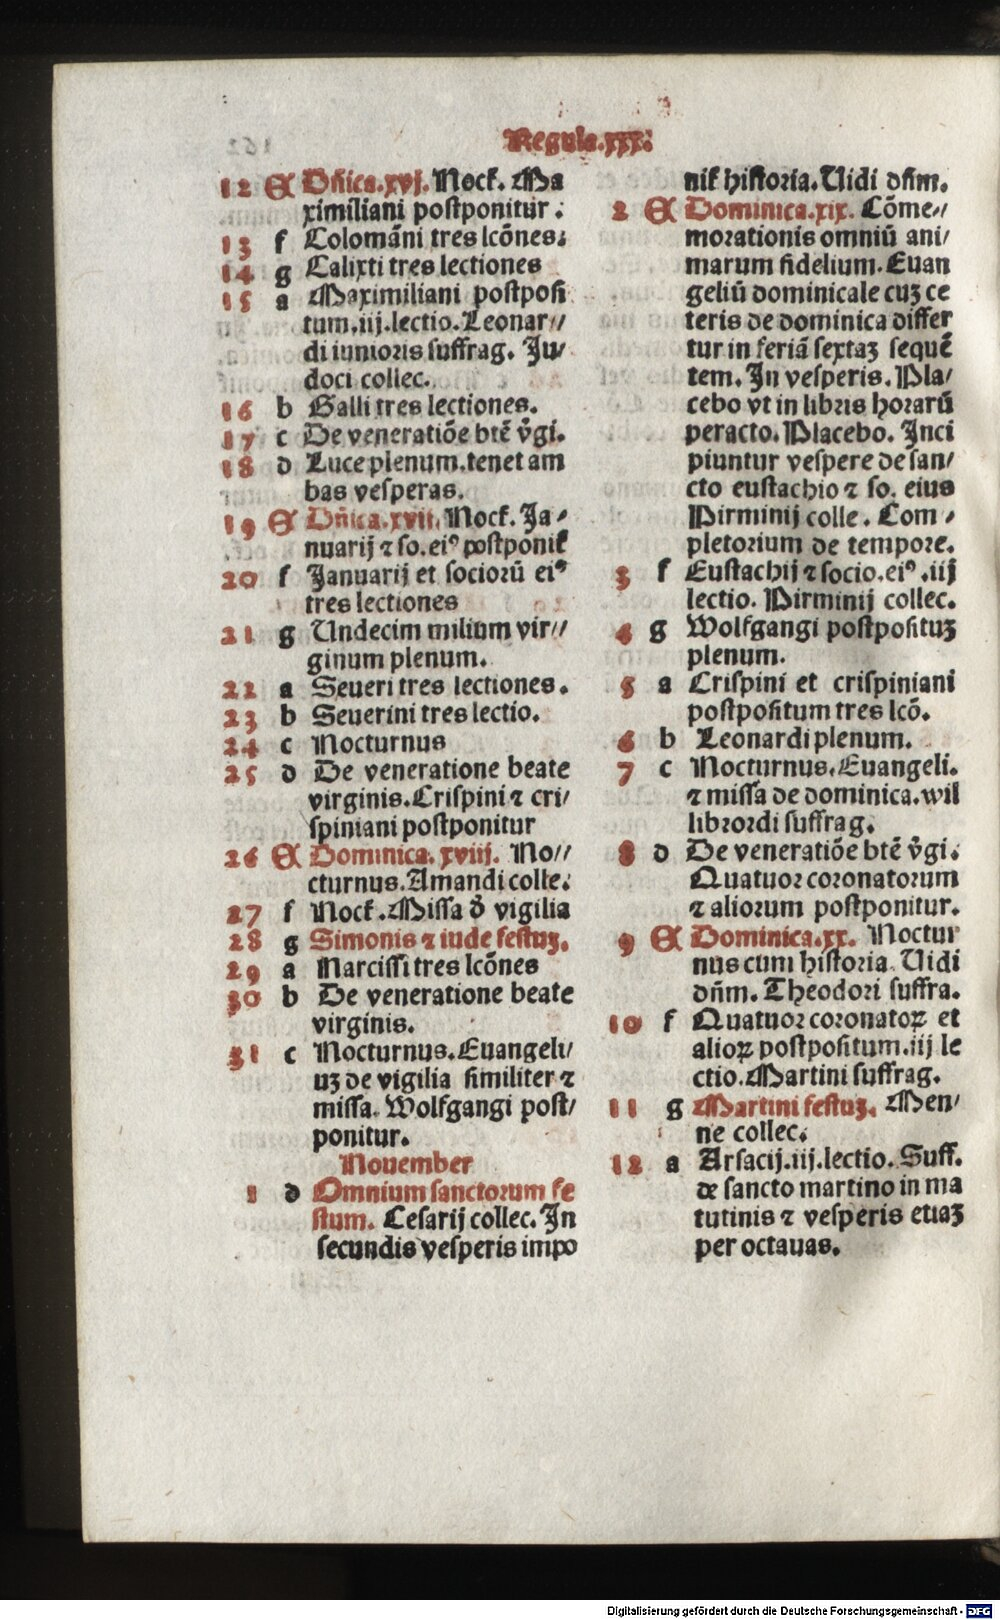 Regula.xxx.
12 A Dn̄ica.xvj. Nocƭ. Ma
ximiliani postponitur.
13 f Colomāni tres lcōnes.
14 g Calixti tres lectiones
15 a Maximiliani postposi
tum.iij.lectio.Leonar//
di iunioris suffrag. Ju/
doci collec.
16 b Galli tres lectiones.
17 c De veneratiōe btē v̄gi.
18 d Luce plenum.tenet am
bas vesperas.
19 A Dn̄ica.xvij. Nocƭ. Ja/
nuarij ⁊ so.eiꝰ postponiƭ
20 f Januarij et sociorū eiꝰ
tres lectiones
21 g Undecim milium vir//
ginum plenum.
22 a Seueri tres lectiones.
23 b Seuerini tres lectio.
24 c Nocturnus
25 d De veneratione beate
virginis.Crispini ⁊ cri/
spiniani postponitur
26 A Dominica. xviij. No//
cturnus.Amandi colle.
27 f Nocƭ.Missa d̄ vigilia
28 g Simonis ⁊ iude festuꝫ.
29 a Narcissi tres lcōnes
30 b De veneratione beate
virginis.
31 c Nocturnus.Euangeli/
uꝫ de vigilia similiter ⁊
missa. Wolfgangi post/
ponitur.
Nouember
1 d Omnium sanctorum fe
stum. Cesarij collec. In
secundis vesperis impo
niƭ historia. Uidi dn̄m.
2 A Dominica.xix. Cōme//
morationis omniū ani/
marum fidelium. Euan
geliū dominicale cuꝫ ce
teris de dominica differ
tur in feriā sextaꝫ sequē
tem. In vesperis. Pla/
cebo vt in libris horarū
peracto. Placebo. Inci
piuntur vespere de san/
cto eustachio ⁊ so. eius
Pirminij colle. Com/
pletorium de tempore.
3 f Eustachij ⁊ socio.eiꝰ.iij
lectio. Pirminij collec.
4 g Wolfgangi postposituꝫ
plenum.
5 a Crispini et crispiniani
postpositum tres lcō.
6 b Leonardi plenum.
7 c Nocturnus.Euangeli.
⁊ missa de dominica.wil
librordi suffrag.
8 d De veneratiōe btē v̄gi.
Quatuor coronatorum
⁊ aliorum postponitur.
9 A Dominica.xx. Noctur
nus cum historia. Uidi
dn̄m. Theodori suffra.
10 f Quatuor coronatoꝝ et
alioꝝ postpositum.iij le
ctio.Martini suffrag.
11 g Martini festuꝫ. Men/
ne collec.
12 a Arsacij.iij.lectio. Suff.
de sancto martino in ma
tutinis ⁊ vesperis etiaꝫ
per octauas.
Digitalisierung gefördert durch die Deutsche Forschungsgemeinschaft - DFG